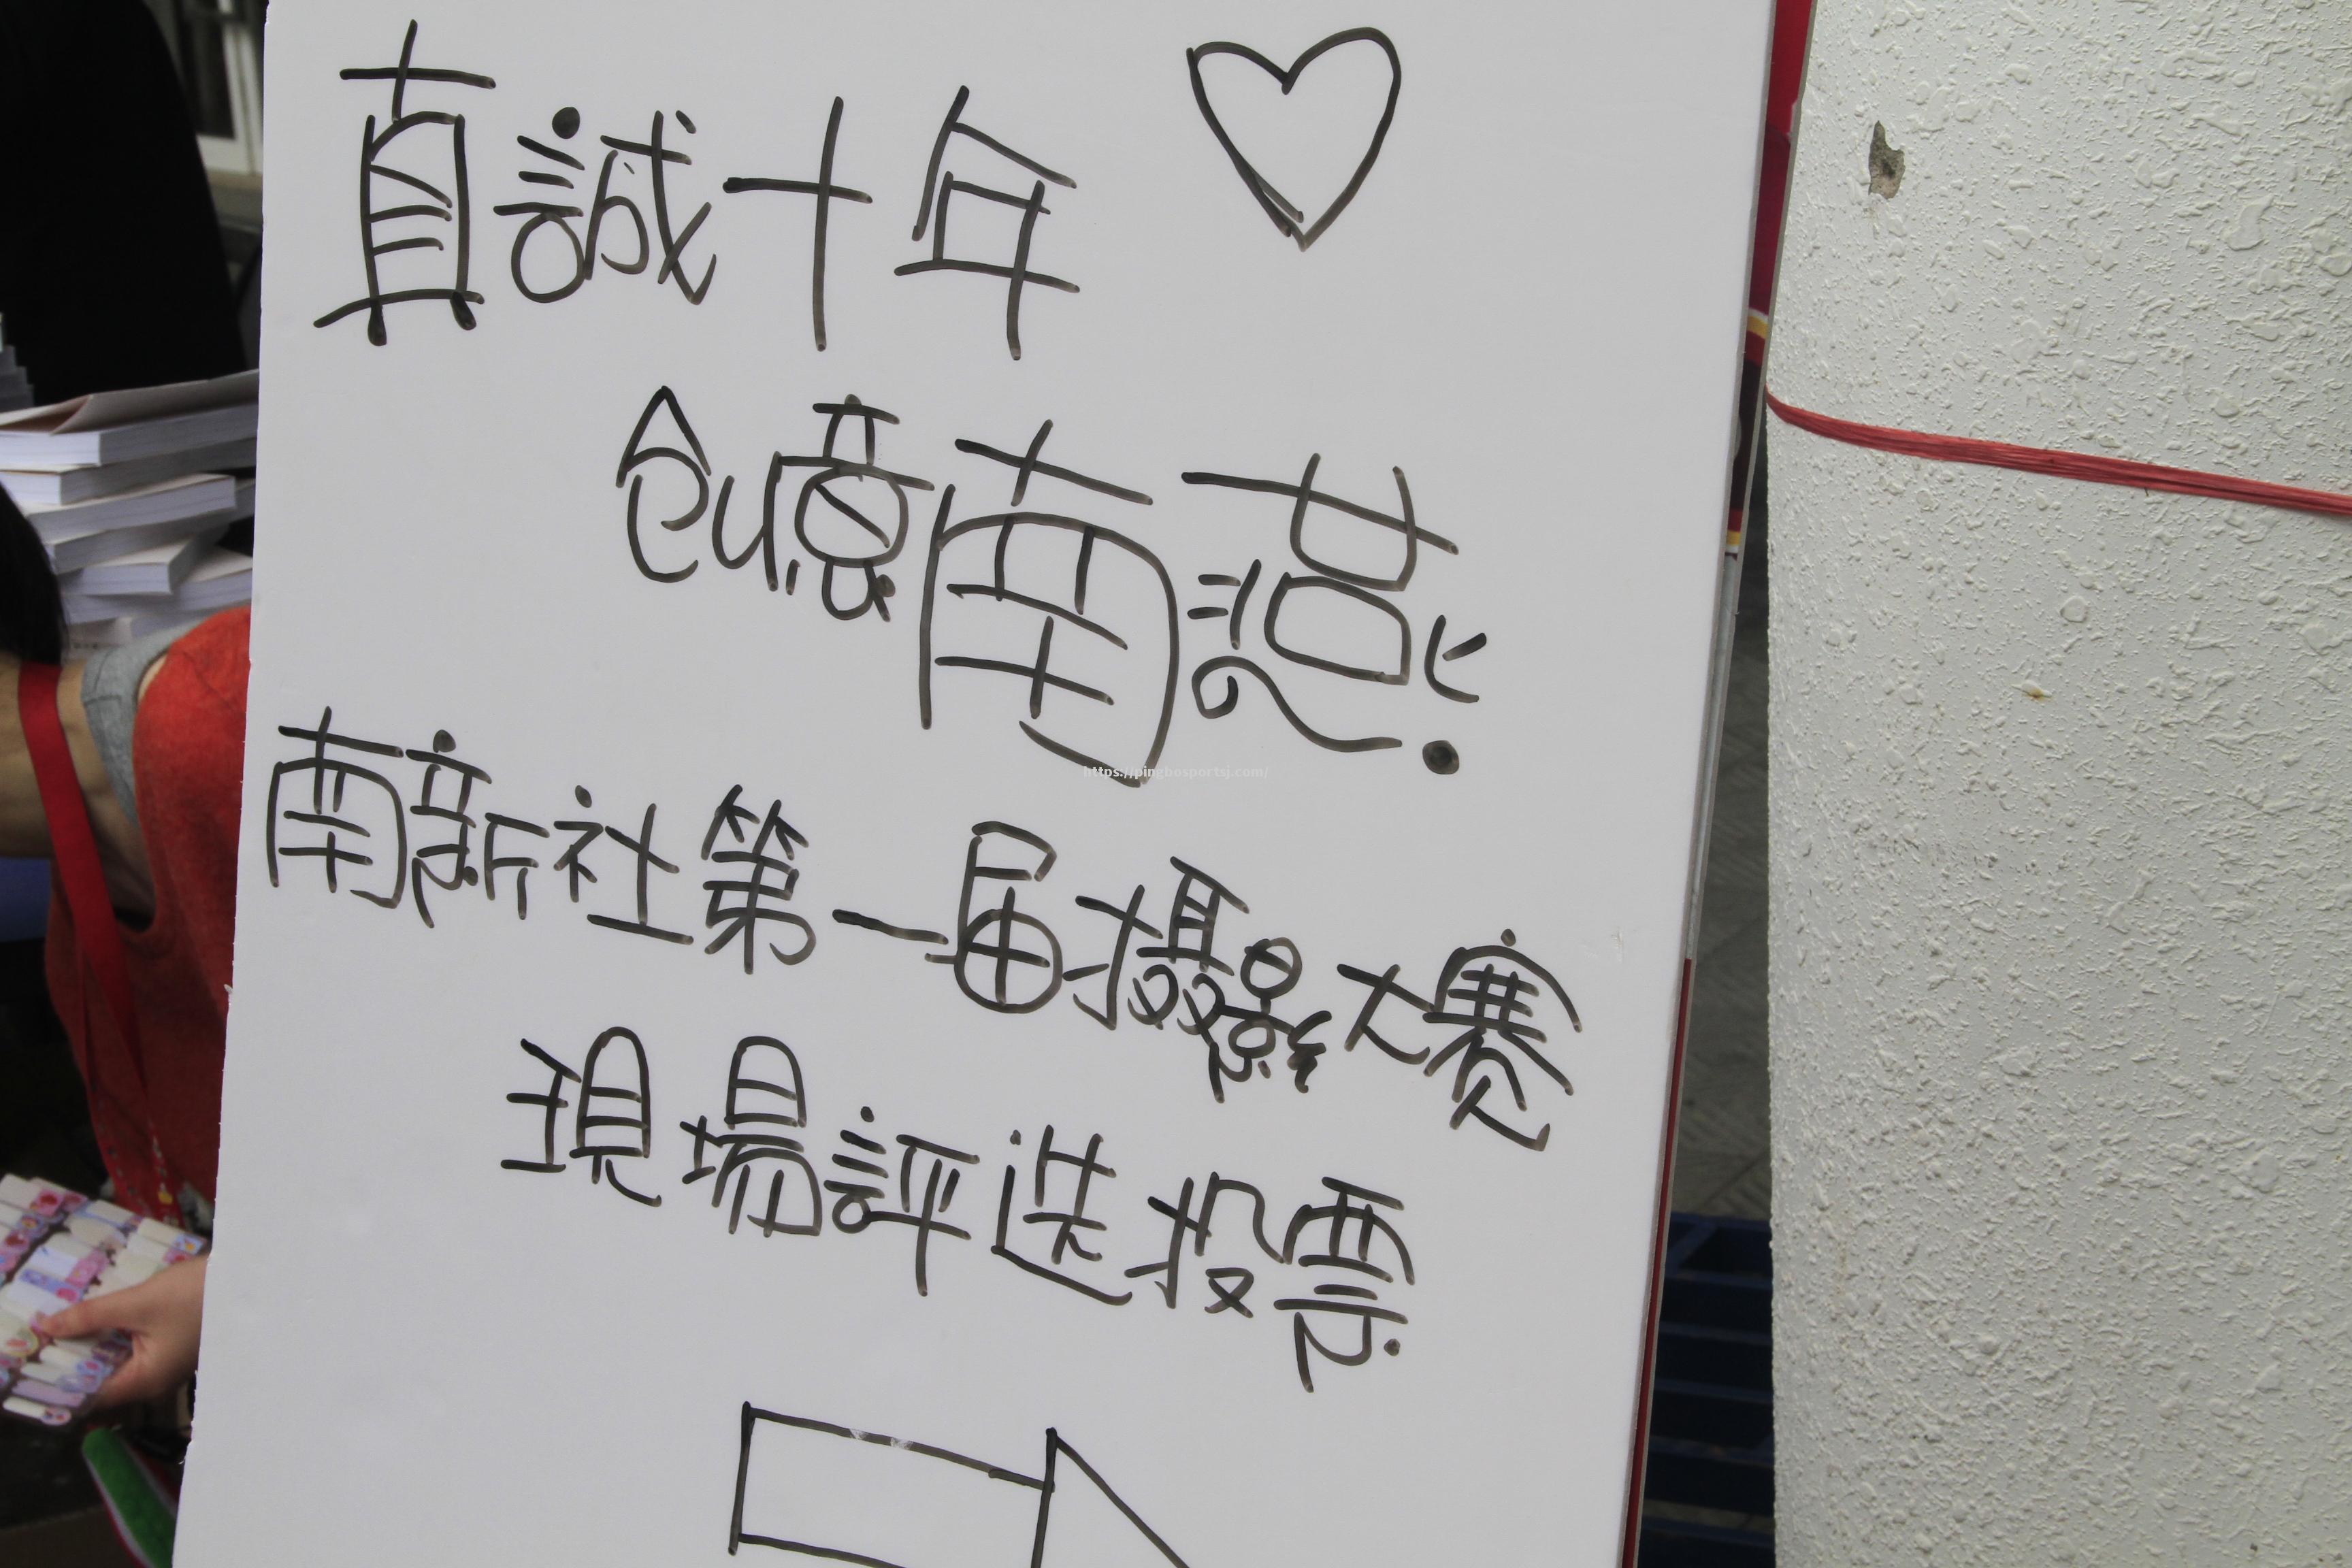 真誠十年
創意南燕
南新社第一届攝影大賽
現場評選投票
https://pingbosportsj.com/